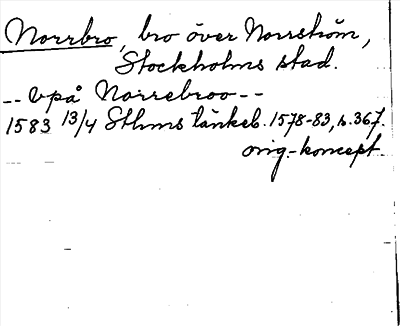 Norrbro, bro över Norrström,
Stockholms stad.
-- vpå Norrebroo --
1583 13/4 Sthms tänkeb. 1578-83, s. 367.
orig.-koncept.